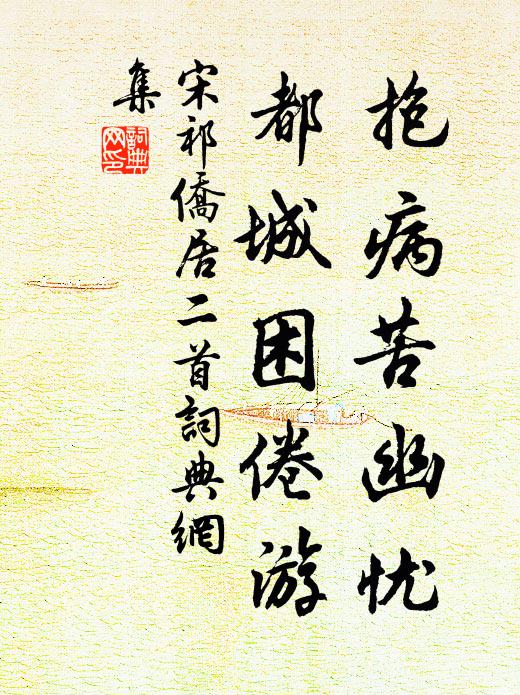 抱病苦幽忧
都城困倦游
宋祁僑居二首詞典網
集
詞典
网印